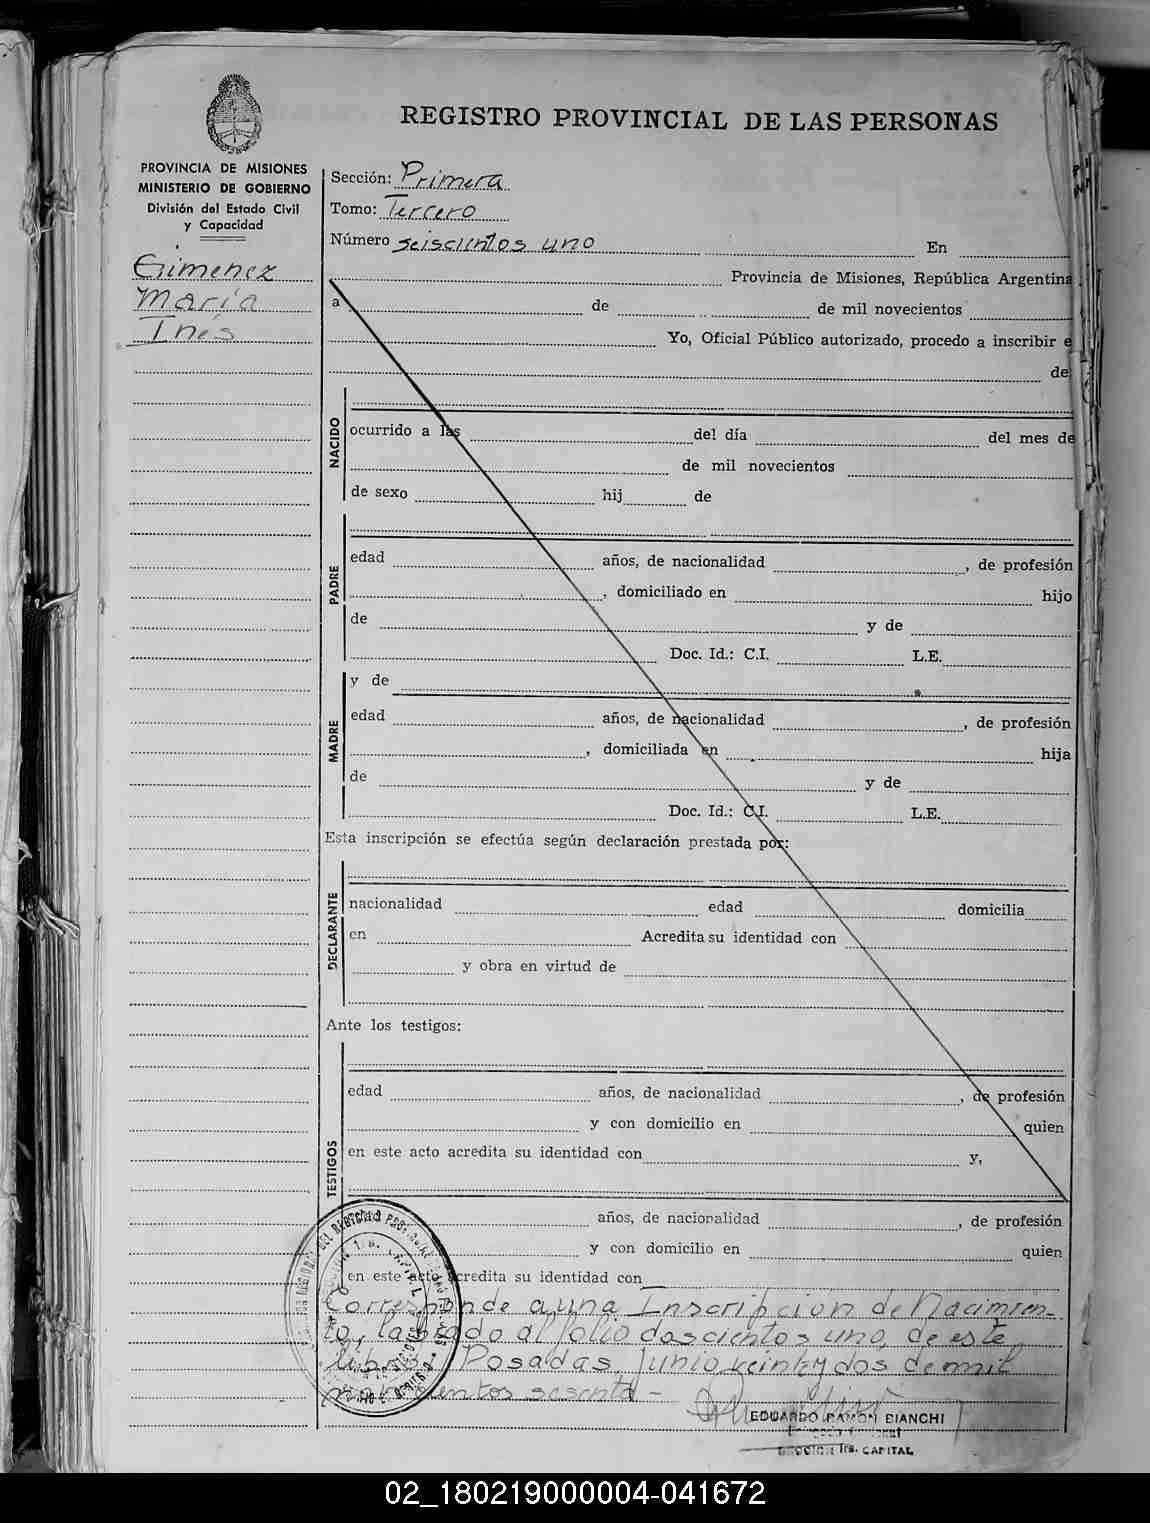 REGISTRO PROVINCIAL DE LAS PERSONAS
PROVINCIA DE MISIONES
MINISTERIO DE GOBIERNO
División del Estado Civil
y Capacidad
Gimenez
María
Inés
Sección: Primera
Tomo: Tercero
Número seiscientos uno En
Provincia de Misiones, República Argentina
a de de mil novecientos
Yo, Oficial Público autorizado, procedo a inscribir e
de
NACIDO
ocurrido a las del día del mes de
de mil novecientos
de sexo hij de
PADRE
edad años, de nacionalidad , de profesión
, domiciliado en hijo
de y de
Doc. Id.: C.I. L.E.
MADRE
y de
edad años, de nacionalidad , de profesión
, domiciliada en hija
de y de
Doc. Id.: C.I. L.E.
Esta inscripción se efectúa según declaración prestada por:
DECLARANTE
nacionalidad edad domicilia
en Acredita su identidad con
y obra en virtud de
Ante los testigos:
TESTIGOS
edad años, de nacionalidad , de profesión
y con domicilio en quien
en este acto acredita su identidad con y,
años, de nacionalidad , de profesión
y con domicilio en quien
en este acto acredita su identidad con
Corresponde a una Inscripcion de Nacimien-
to, labrado al folio doscientos uno, de este
libro. Posadas, Junio veintydos de mil
novecientos sesenta -
EDUARDO RAMON BIANCHI
1ra. CAPITAL
02_180219000004-041672